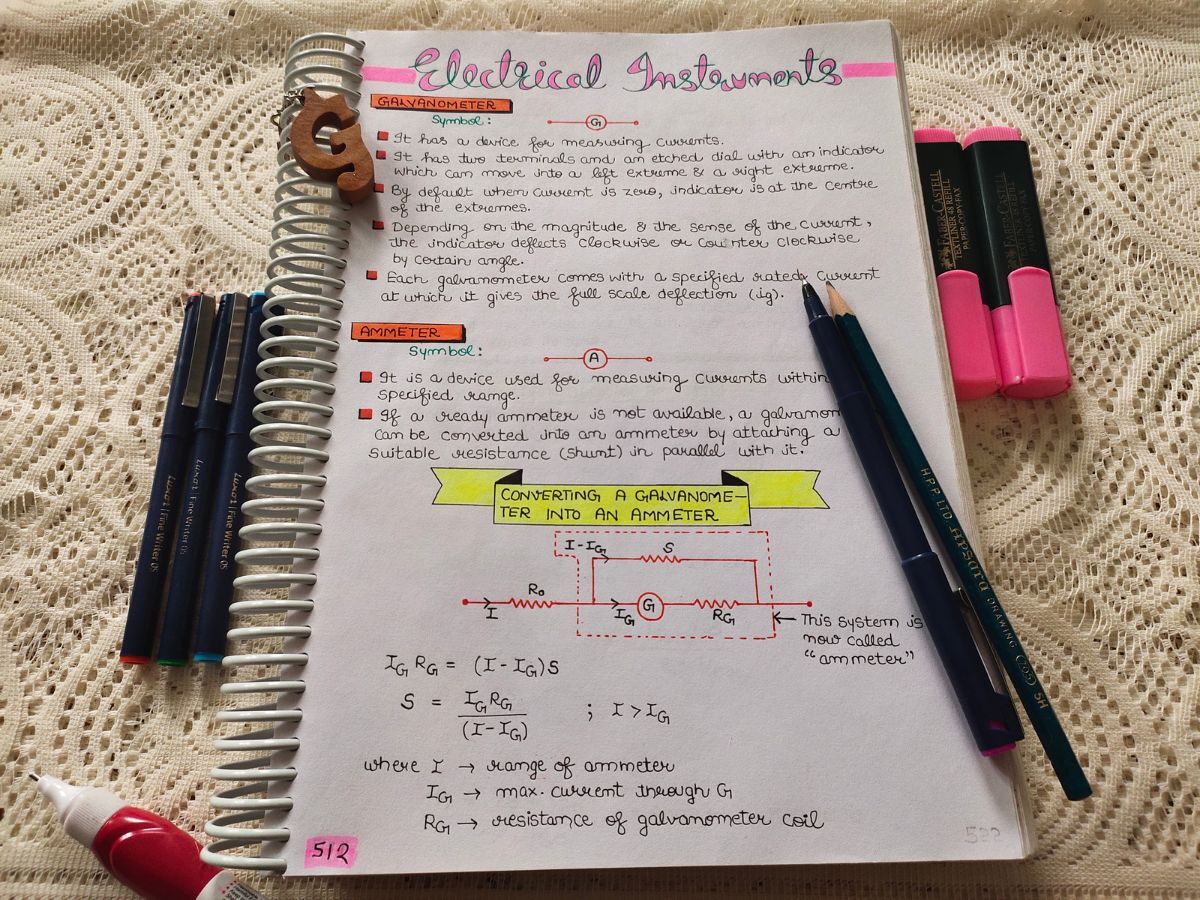 Electrical Instruments
GALVANOMETER
Symbol:
G
It has a device for measuring currents.
It has two terminals and an etched dial with an indicator
which can move into a left extreme & a right extreme.
By default when current is zero, indicator is at the centre
of the extremes.
Depending on the magnitude & the sense of the current,
the indicator deflects clockwise or counter clockwise
by certain angle.
Each galvanometer comes with a specified rated current
at which it gives the full scale deflection (ig).
AMMETER
Symbol:
A
It is a device used for measuring currents within
specified range.
If a ready ammeter is not available, a galvanom
can be converted into an ammeter by attaching a
suitable resistance (shunt) in parallel with it.
CONVERTING A GALVANOME-
TER INTO AN AMMETER
I-IG
S
R0
I
IG
G
RG
This system is
now called
"ammeter"
IG RG = (I-IG)S
S = IGRG/(I-IG) ; I>IG
where I → range of ammeter
IG → max. current through G
RG → resistance of galvanometer coil
512
G
Luxor | Fine Writer 05
Luxor | Fine Writer 05
Luxor | Fine Writer 05
FABER-CASTELL
TEXTLINER 48 REFILL
PAPER·COPY·FAX
FABER-CASTELL
TEXTLINER 48 REFILL
PAPER·COPY·FAX
H.P.P. LTD. Apsara DRAWING 5H